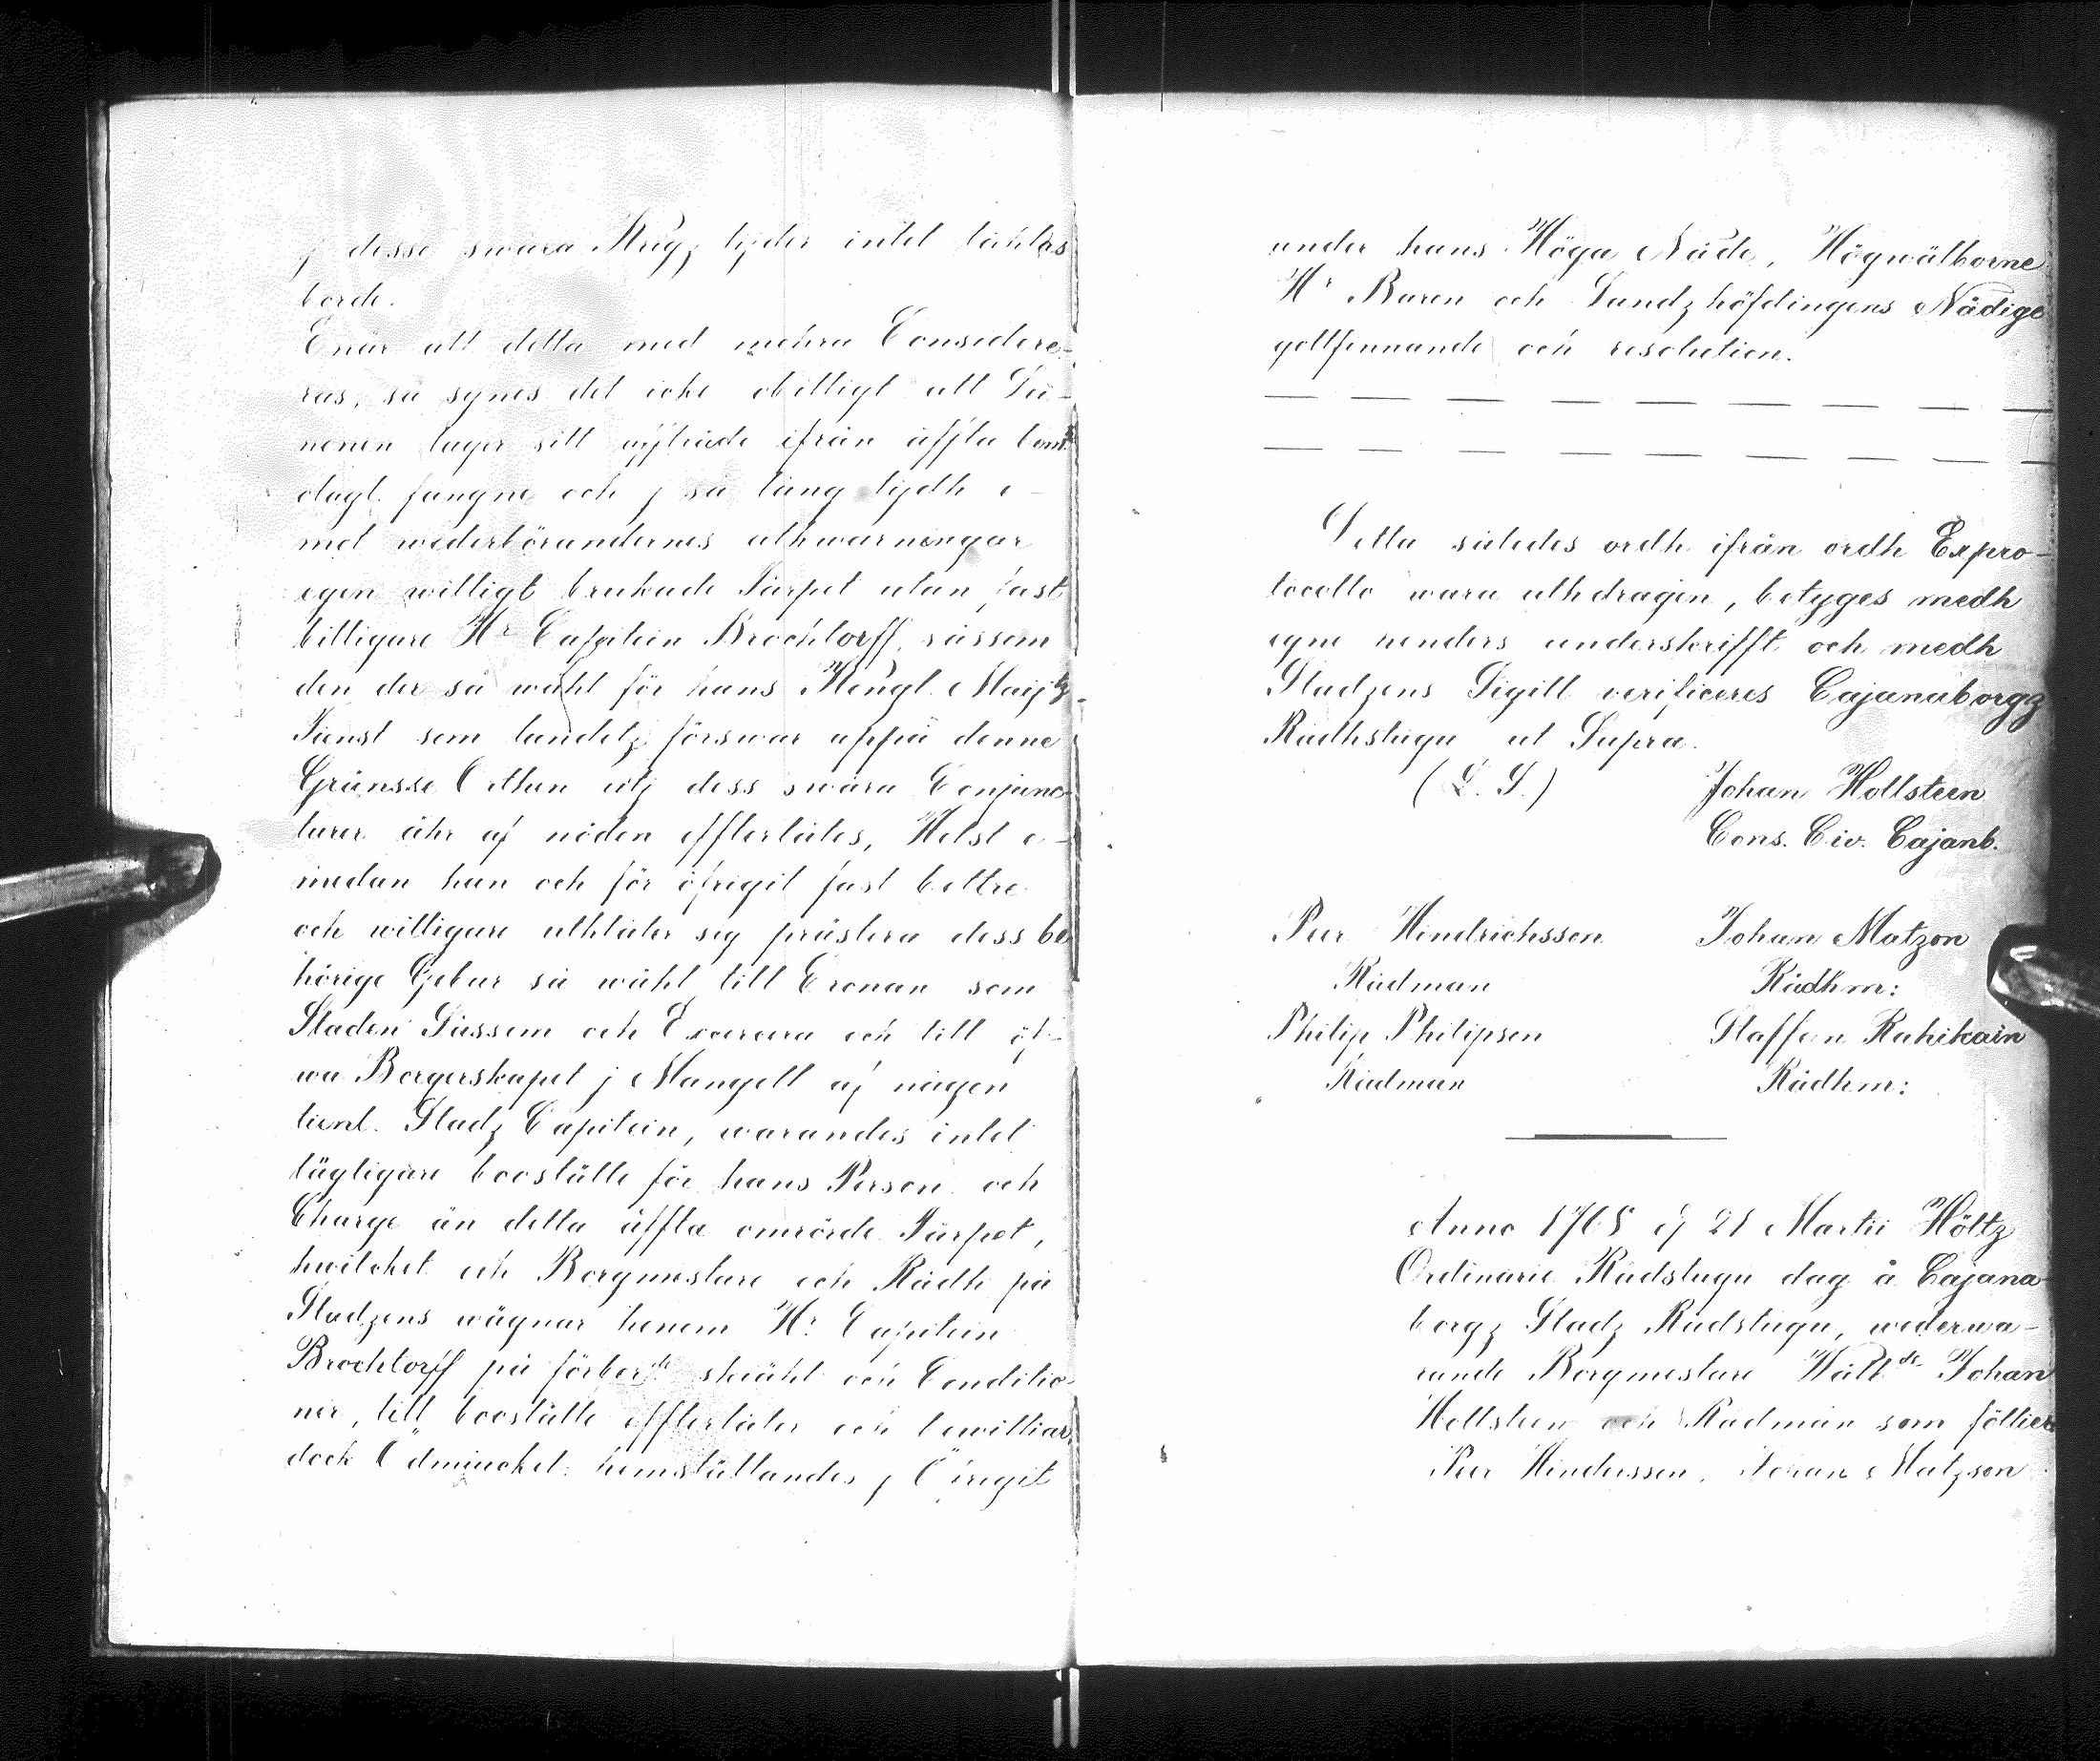 j desse swåra Krigz tijder intet tåhlas
borde.
Enär alt detta med mehra Considere-
ras, så synes det icke obilligt att Lu-
nonen tager sitt afträde ifrån åffta bem:
dagl. fangne och j så lång tijdh e-
mot wederbörandernes uthwarningar
egenwilligt brukade Tårpet utan fast
billigare Hr Capitein Brochtorff, såssom
den der så wähl för hans Kongl. Maijtz
Tienst som landetz förswar uppå denne
Gränsse Orthen utj dess swåra Conjunc-
turer ähr af nöden effterlåtes, Helst e-
medan han och för öfrigit fast bettre
och willigare uthlåter sig prästera dess be
hörige Gebur så wähl till Cronan som
Staden Såssom och Excercera och till öf-
wa Borgerskapet j Mangell af någon
tienl. Stadz Capitein, warandes intet
lägligare booställe för hans Person och
Charge än detta åffta omrörde Tårpet,
hwilcket och Borgmestare och Rådh på
Stadzens wägnar honom Hr Capitein
Brochtorff på förberde skiähl och Conditio-
ner, till booställe effterlåter och bewilliar,
dock Ödmiucket hemställandes j Öfrigit
under hans Höga Nåde, Högwälborne
Hr Baron och Landzhöfdingens Nådige
gottfinnande och resolution.
Detta således ordh ifrån ordh Expro-
tocollo wara uthdragin, betyges medh
egne henders underskrifft och medh
Stadzens Sigill verificeres Cajanaborgz
Rådhstugu ut Supra.
(L. S.) Johan Hollsteen
Cons. Civ. Cajanb.
Peer Hindrichsson Johan Matzon
Rådman Rådhm:
Philip Philipson Staffan Rahikain
Rådman Rådhm:
Anno 1705 d 21 Martii Höltz
Ordinarie Rådstugu dag å Cajana
borgz Stadz Rådstugu, närwa-
rande Borgmestare Wälbde Johan
Hollsteen och Rådmän som föllier
Peer Hinderssen, Johan Matzson